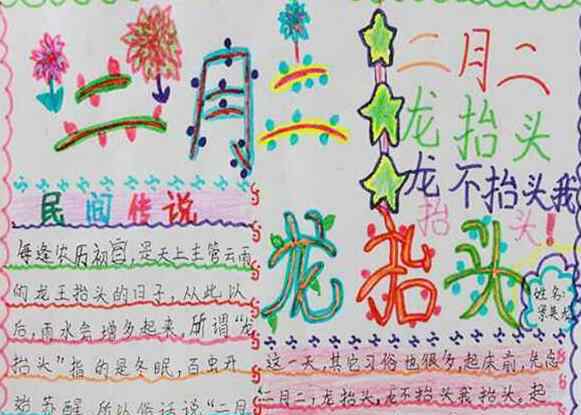 二月二
二月二
龙抬头
龙不抬头我
抬头!
民间传说
龙抬头
每逢农历初
，是天上主管云雨
的龙王抬头的日子，从此以
后，雨水会增多起来，所谓“龙
抬头”指的是冬眠，百虫开
始苏醒，所以俗话说“二月
姓名:
这一天，其它习俗也很多，起床前，先念
二月二，龙抬头，龙不抬头我抬头，起